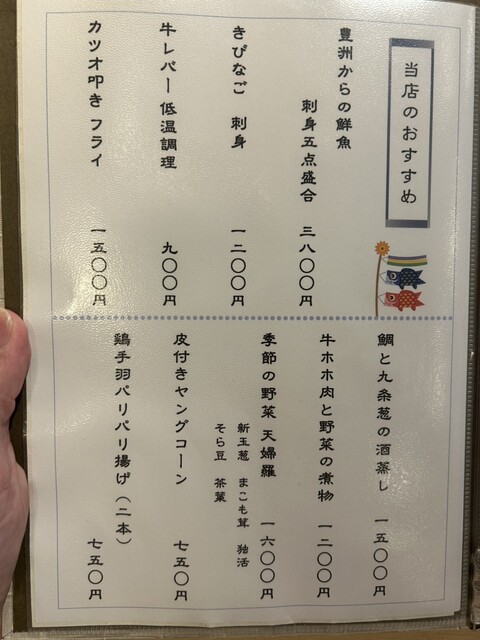 当店のおすすめ
豊洲からの鮮魚
刺身五点盛合 三八〇〇円
きびなご 刺身 一二〇〇円
牛レバー 低温調理 九〇〇円
カツオ叩き フライ 一五〇〇円
鯛と九条葱の酒蒸し 一五〇〇円
牛ホホ肉と野菜の煮物 一二〇〇円
季節の野菜 天婦羅 一六〇〇円
新玉葱 まこも茸 独活
そら豆 茶葉
皮付きヤングコーン 七五〇円
鶏手羽パリパリ揚げ(二本) 七五〇円